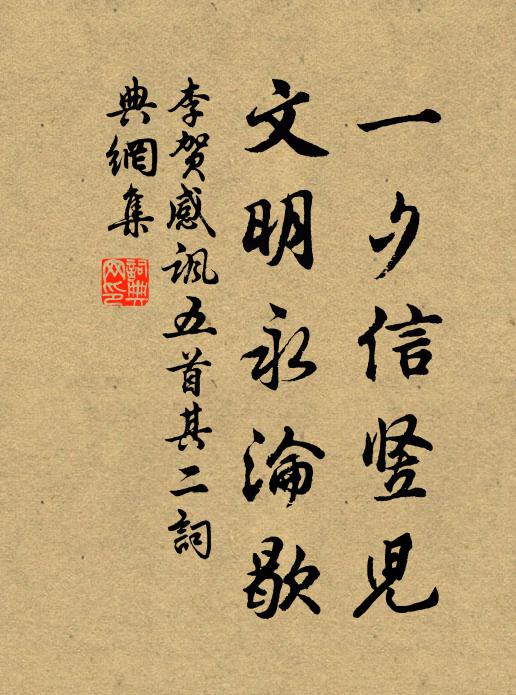 一夕信竖児
文明永淪歇
李贺感讽五首其二詞
典網集
詞典
网印